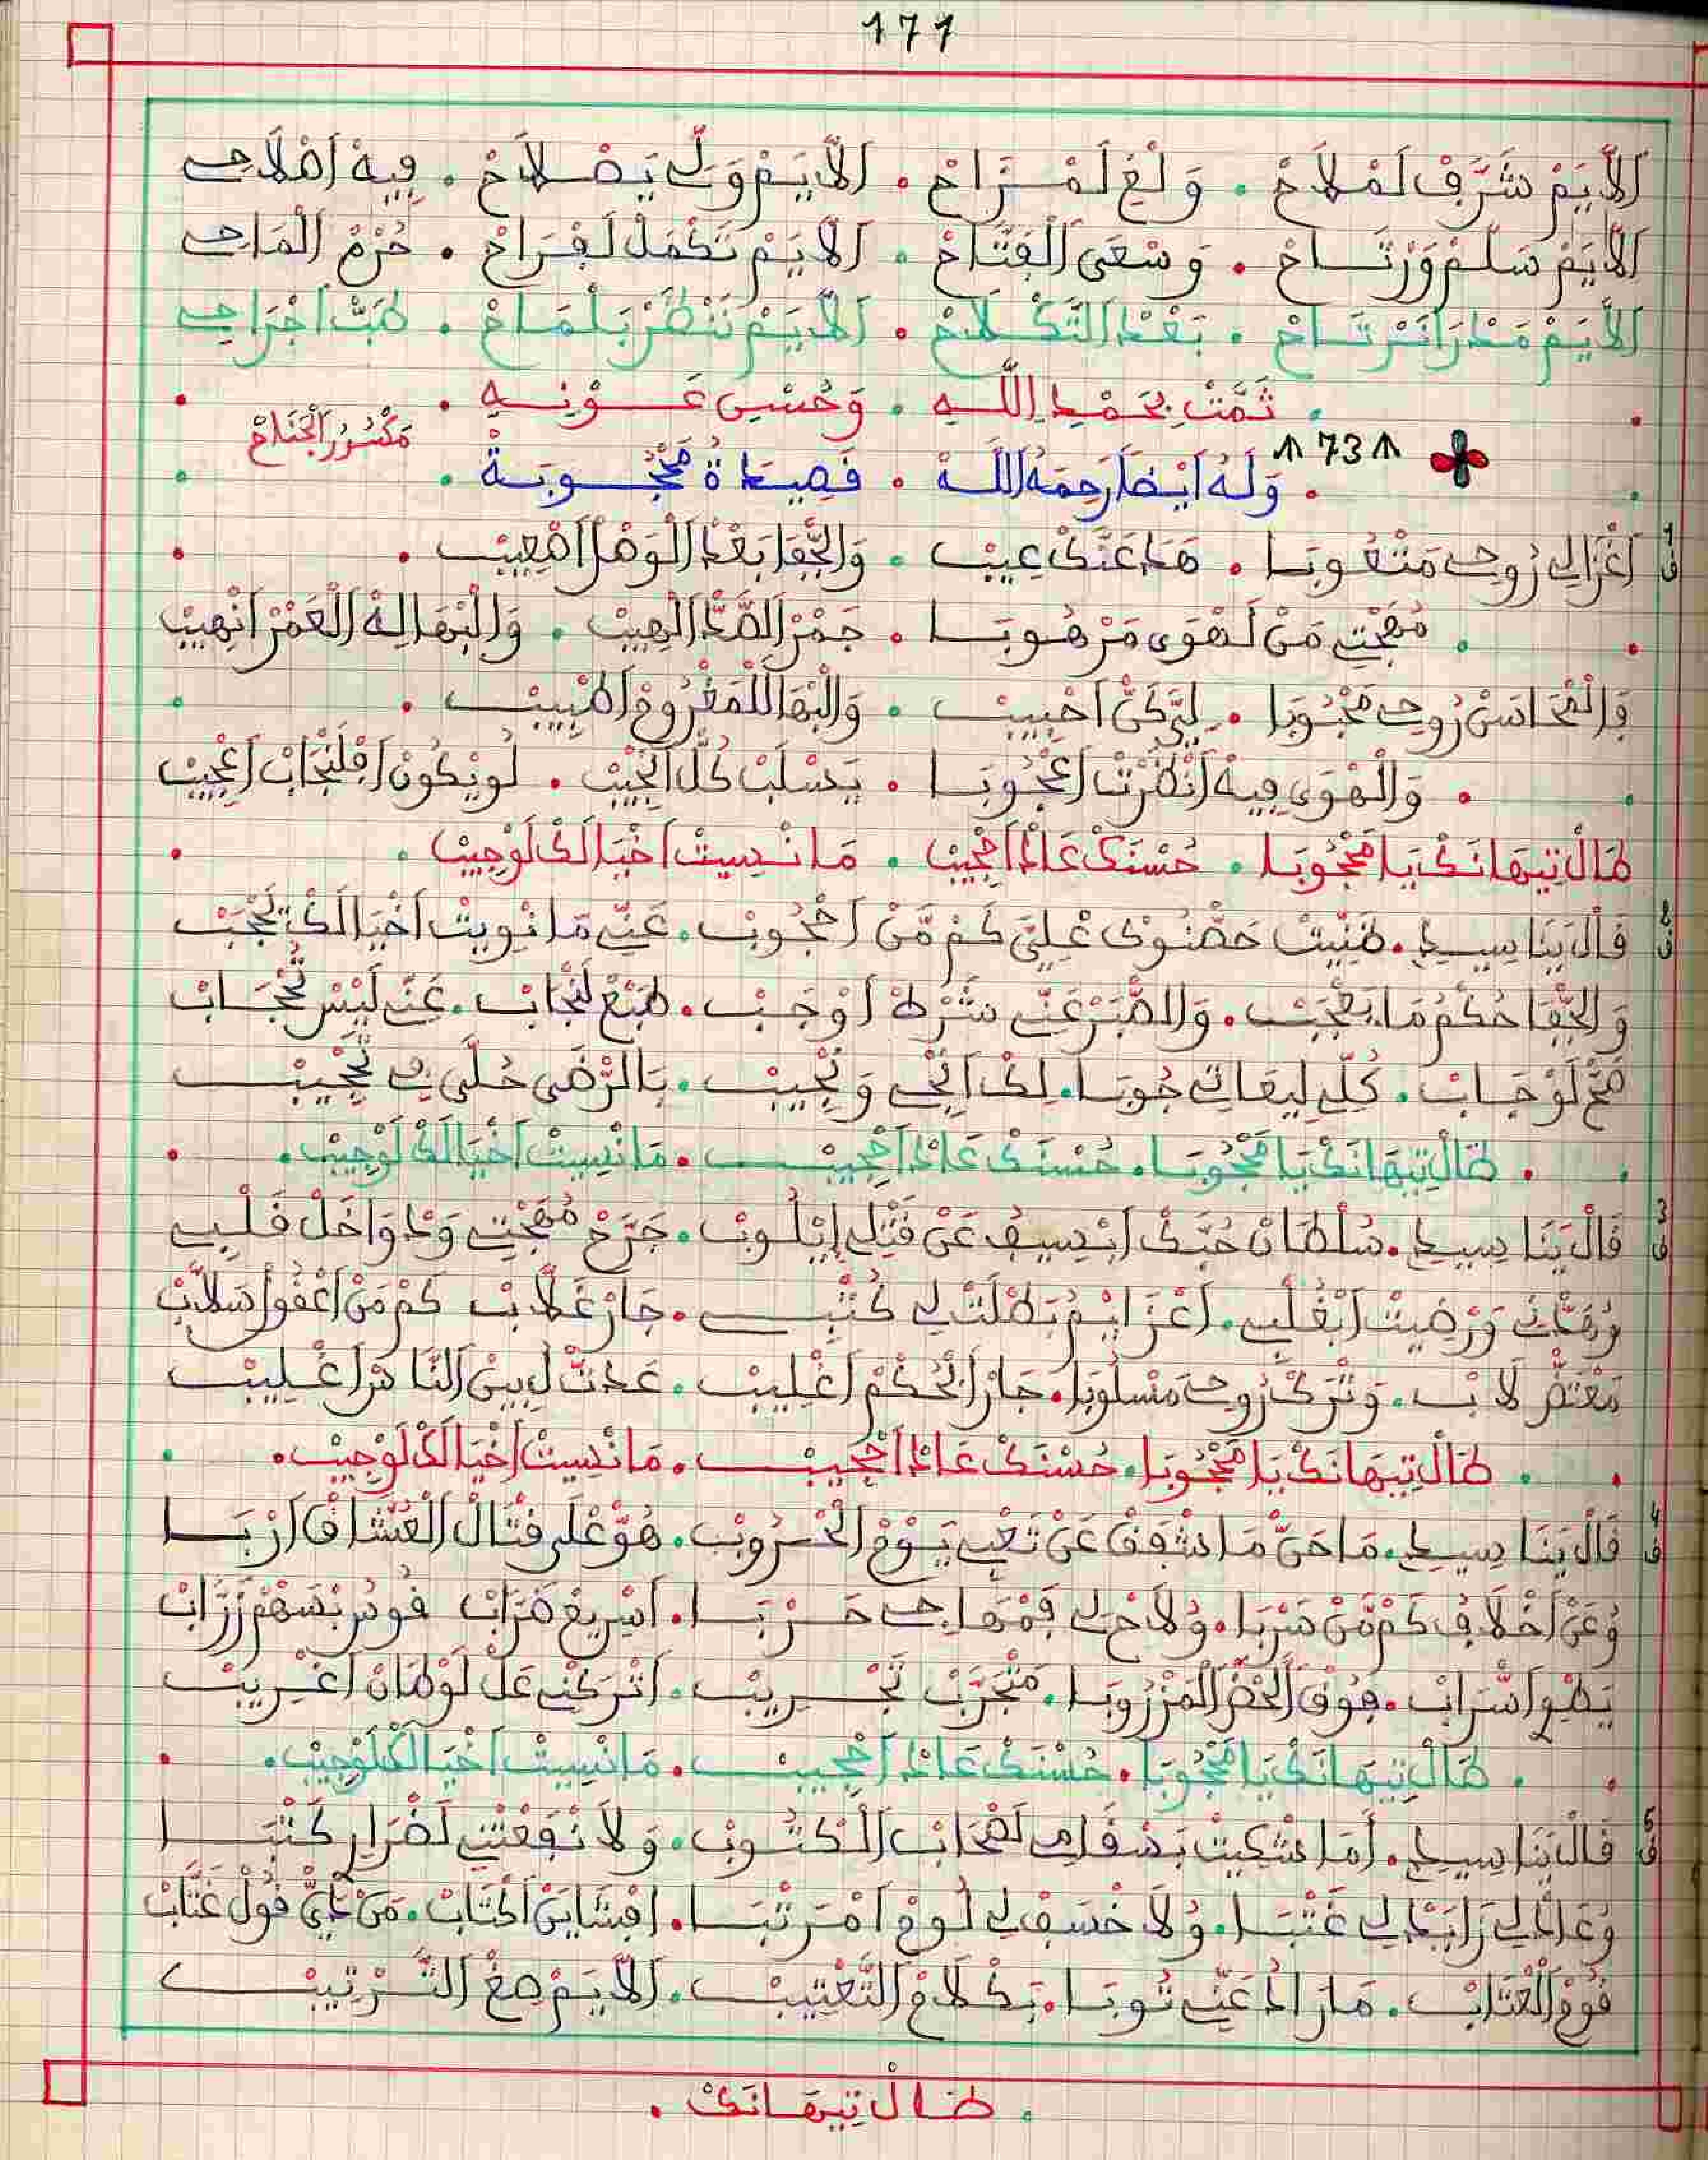 171
اَلاَّيَمْ شَرَّفْ لَمْلاَحْ . وَلْغَ لَمْزَاحْ . اَلاَّيَمْ وَلِّ يَصْلاَحْ . فِيهْ اَصْلاَحِي
اَلاَّيَمْ سَلَّمْ وَرْتَاحْ . وَسْعَى الْفَتَّاحْ . اَلاَّيَمْ تَكْمَلْ لَفْرَاحْ . حُرْمْ الْمَاحِي
اَلاَّيَمْ صَدْرَا نَشْرَتَاحْ . بَعْدْ التَّكْلاَحْ . اَلاَّيَمْ نَنْظَرْ بَلْمَاحْ . طَبْتْ اَجْرَاحِي
ثَمَّتْ بِحَمْدِ اللَّهِ . وَحُسْنِ عَوْنِهِ .
مَكْسُورْ الْجْنَاحْ
↑ 73 ↑
وَلَهُ اَيْضًا رَحِمَهُ اللَّهْ . قَصِيدَةُ مَحْجُوبَةْ .
1 ق اَغْزَالِي رُوحِي مَتْعُوبَا . هَدَا عَنَّكْ عِيبْ . وَالْجْفَا بَعْدْ الْوَصْلْ اَصْعِيبْ .
مُهْجْتِي مَنْ لَهْوَى مَرْهُوبَا . جَمْرْ الصَّدّْ الْهِيبْ . وَالْبْهَا لِهْ الْعَمْرْ اَنْهِيبْ
وَالْمْحَاسَنْ رُوحِي مَحْبُوبَا . لِيَّ كَنّْ اَحْبِيبْ . وَالْبْهَا لَلْمَغْرُومْ اَطْبِيبْ .
وَالْهْوَى فِيهْ اَنْظَرْتْ اَعْجُوبَا . يَسْلَبْ كُلّْ الْجِيبْ . لُويْكُونْ اَفْلَنْجَابْ اَعْجِيبْ
طَالْ تِيهَانَكْ يَا مَحْجُوبَا . حُسْنَكْ عَادْ اَحْجِيبْ . مَا نْسِيتْ اَخْيَالَكْ لَوْجِيبْ .
2 ق قَالْ يَنَا سِيدِي . ظَنِّيتْ حَضْنُوكْ عْلِيَّ كَمْ مَّنْ اَحْجُوبْ . عَنِّي مَا نْوِيتْ اَخْيَالَكْ يَحْجَبْ
وَالْجْفَا حُكْمُ مَا يَعْجَبْ . وَالصَّبْرْ عَنِّي شَرْطْ اَوْجَبْ . طَبْعْ لَنْجَابْ . عَنِّي لَيْسْ تُحْجَابْ
صَحّْ لَوْجَابْ . كُلِّ لِيعَاتِي جُوبَا . لِكْ اَنْجِي وَنْجِيبْ . بَالرّْضَى حُلَّى بِي تَحْجِيبْ
طَالْ تِيهَانَكْ يَا مَحْجُوبَا . حُسْنَكْ عَادْ اَحْجِيبْ . مَا نْسِيتْ اَخْيَالَكْ لَوْجِيبْ .
3 ق قَالْ يَنَا سِيدِي . سُلْطَانْ حُبَّكْ اَبْسِيفُ عَنْ قَتْلِي اِيْلُوبْ . جَرَّحْ مُهْجْتِي وَدْوَاخَلْ قَلْبِي
وَرْضِيتْ اَبْغُلْبِي . اَعْزَايْمُ بَطْلَتْ لِي كُتْبِي . جَارْ غَلاَّبْ كَمْ مَنْ اَعْقُولْ سْلاَبْ
لاَبْ . وَتْرَكْ رُوحِي مَسْلُوبَا . جَارْ الْحُكْمْ اَغْلِيبْ . عَدْتْ لِ بِينْ النَّاصْرْ اَغْلِيبْ
طَالْ تِيهَانَكْ يَا مَحْجُوبَا . حُسْنَكْ عَادْ اَحْجِيبْ . مَا نْسِيتْ اَخْيَالَكْ لَوْجِيبْ .
4 ق قَالْ يَنَا سِيدِي . مَا حَنّْ مَا شْفَقْ عَنْ تَعْبِي يَوْمْ الْحْرُوبْ . هُوَّ عْلَى قْتَالْ الْعُشَّاقْ اَرْبَا
وُعَنْ اَخْلاَفُ كَمْ مَّنْ ضَرْبَا . وُلاَحْ لِي فَمْهَاجِي حَرْبَا . اَسْرِيعْ ضَرَّابْ قُوسُ بْسَهْمْ زَرَّابْ
. فُوقْ الْخَصْرْ الْمَزْرُوبَا . مَتْجَرَّبْ تَجْرِيبْ . اَتْرَكْنِي عَلْ لَوْطَانْ اَغْرِيبْ
طَالْ تِيهَانَكْ يَا مَحْجُوبَا . حُسْنَكْ عَادْ اَحْجِيبْ . مَا نْسِيتْ اَخْيَالَكْ لَوْجِيبْ .
5 ق قَالْ يَنَا سِيدِي . اَمَا شْكِيتْ بَسْقَامِي لَصْحَابْ الْكْتُوبْ . وَلاَ نَفْعَتْنِي لَضْرَارِي كَتْبَا
وُعَادْ لِي زَايَدْ لِي غَتْبَا . وُلاَ خْسَفْ لِي لُومْ اَمْرَتْبَا . اَفْشَايَنْ الْكْتَابْ . مَنْ قُولْ عَتَّابْ
قُومْ الْعْتَابْ . مَازَادْ عَنِّي تُوبَا . بَكْلاَمْ التَّعْتِيبْ . اَلاَّيَمْ صَغْ التَّرْتِيبْ
. طَالْ تِيهَانَكْ .